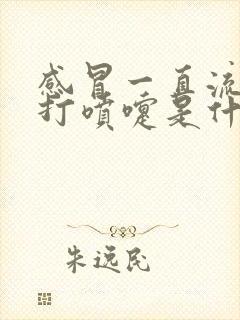 感冒一直流
打喷嚏是什
朱远民